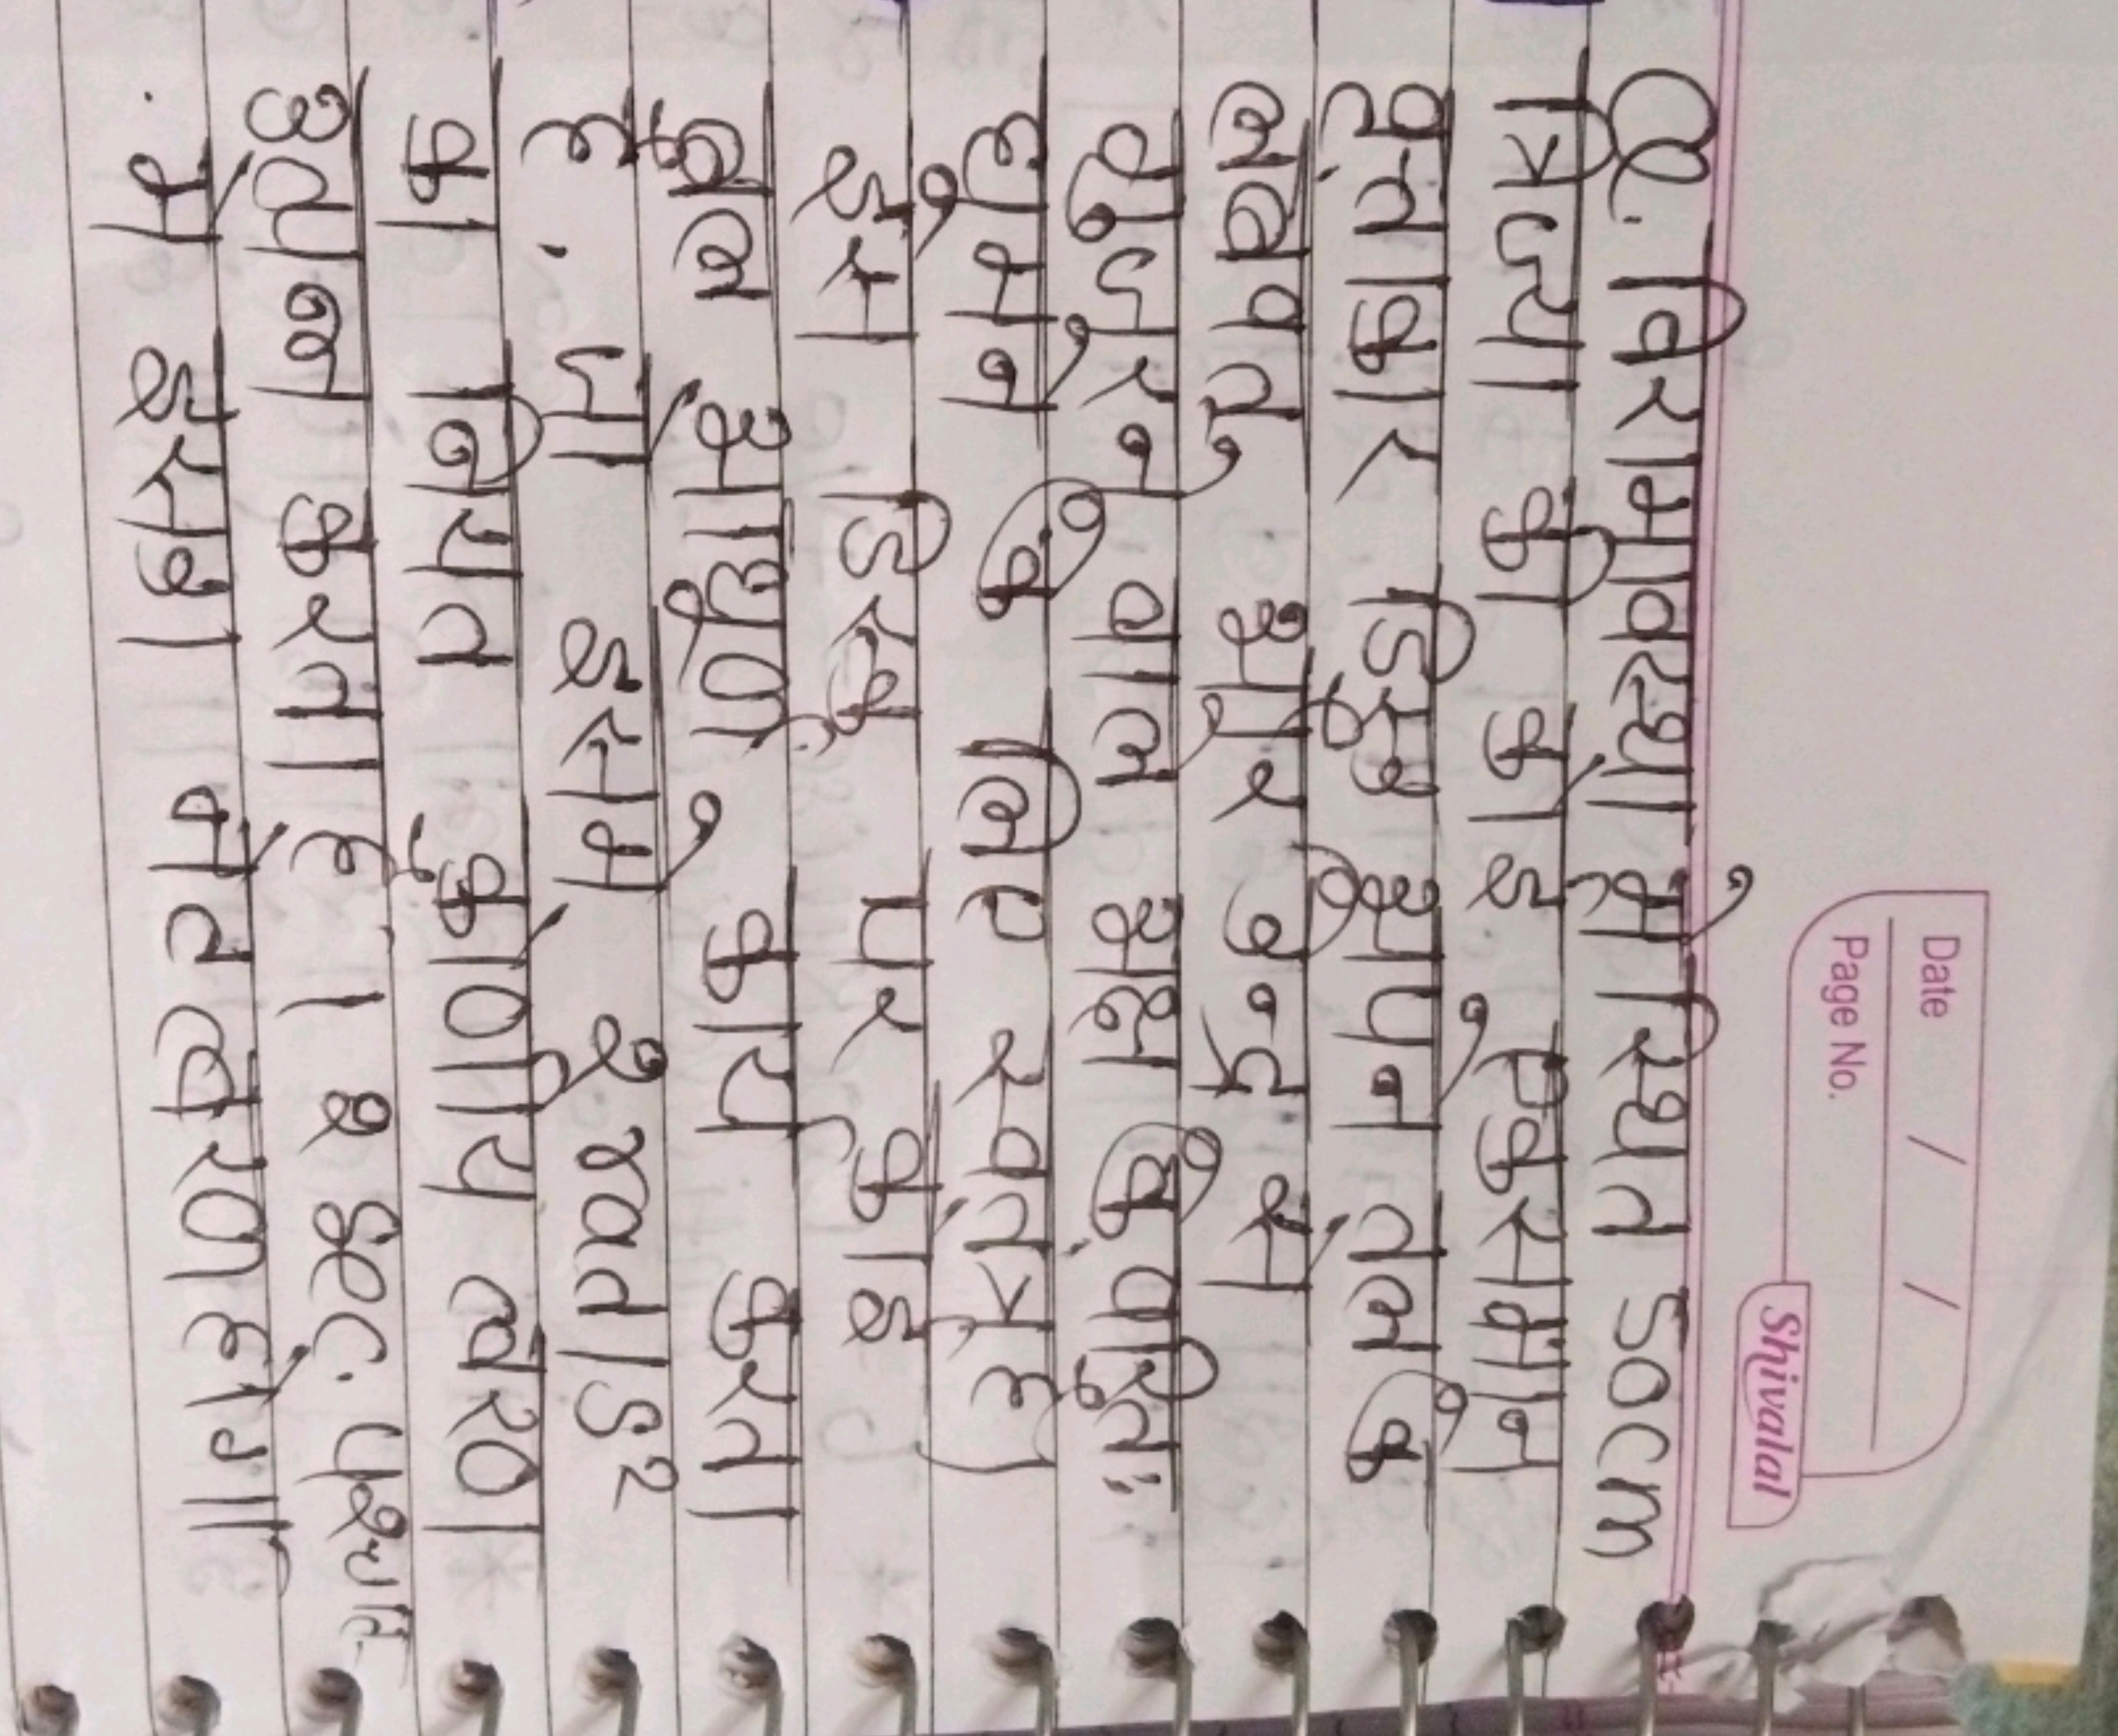 Date / /
Page No.
Shivalal
Q. विरामावस्था में स्थित 50cm
त्रिज्या की कोई एकसमान
वृत्ताकार डिस्क अपने तल के
लंबवत् और केन्द्र से
गुजरने वाले अक्ष के परितः
घूमने के लिए स्वतंत्र है
इस डिस्क पर कोई
बल आघूर्ण कार्य करता
है, जो इसमें 2 rad/s²
का नियत कोणीय त्वरण
उत्पन्न करता है । 2 sec. पश्चात
में इसका नेट त्वरण होगा